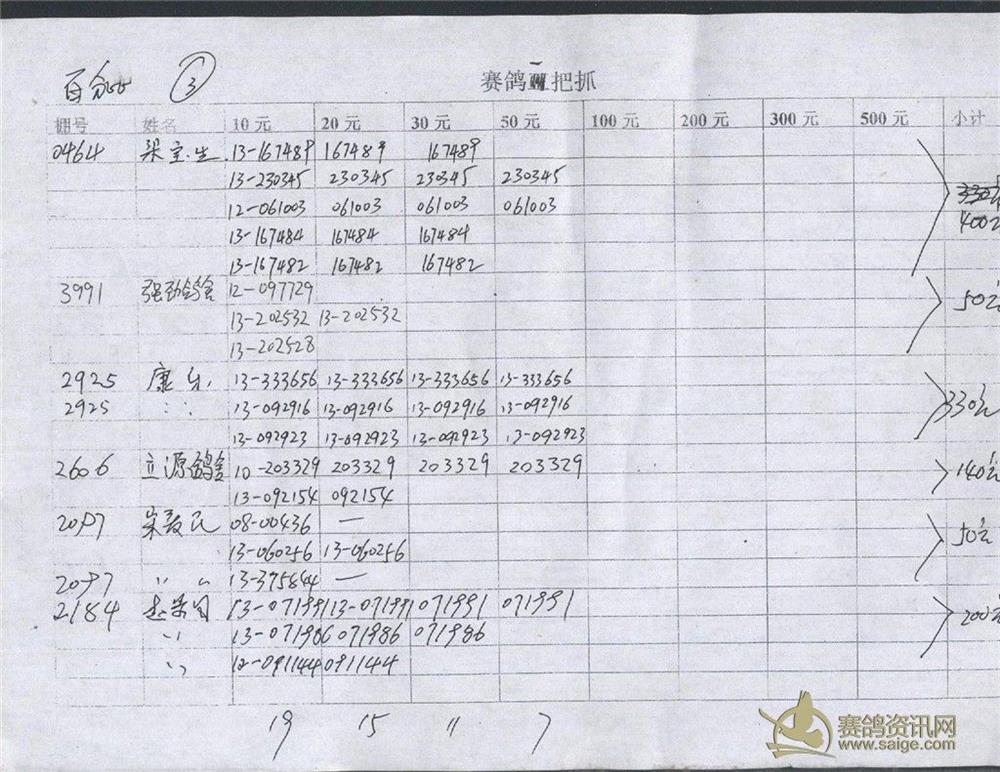 百分比 ③ 赛鸽一把抓
棚号 姓名 10元 20元 30元 50元 100元 200元 300元 500元 小计
0464 梁宝生 13-167489 167489 167489
13-230345 230345 230345 230345 330元
12-061003 061003 061003 061003 400元
13-167484 167484 167484
13-167482 167482 167482
3991 强劲鸽舍 12-097729 50元
13-202532 13-202532
13-202528
2925 康乐 13-333656 13-333656 13-333656 13-333656
2925 〃 13-092916 13-092916 13-092916 13-092916 330元
13-092923 13-092923 13-092923 13-092923
2606 立源鸽舍 10-203329 203329 203329 203329 140元
13-092154 092154
2097 宋 民 08-00436 — 50元
13-060256 13-060256
2097 〃 〃 13-375844 —
2184 13-071991 13-071991 071991 071991 200元
〃 13-071986 071986 071986
〃 12-091144 091144
19 15 11 7
赛鸽资讯网
www.saige.com